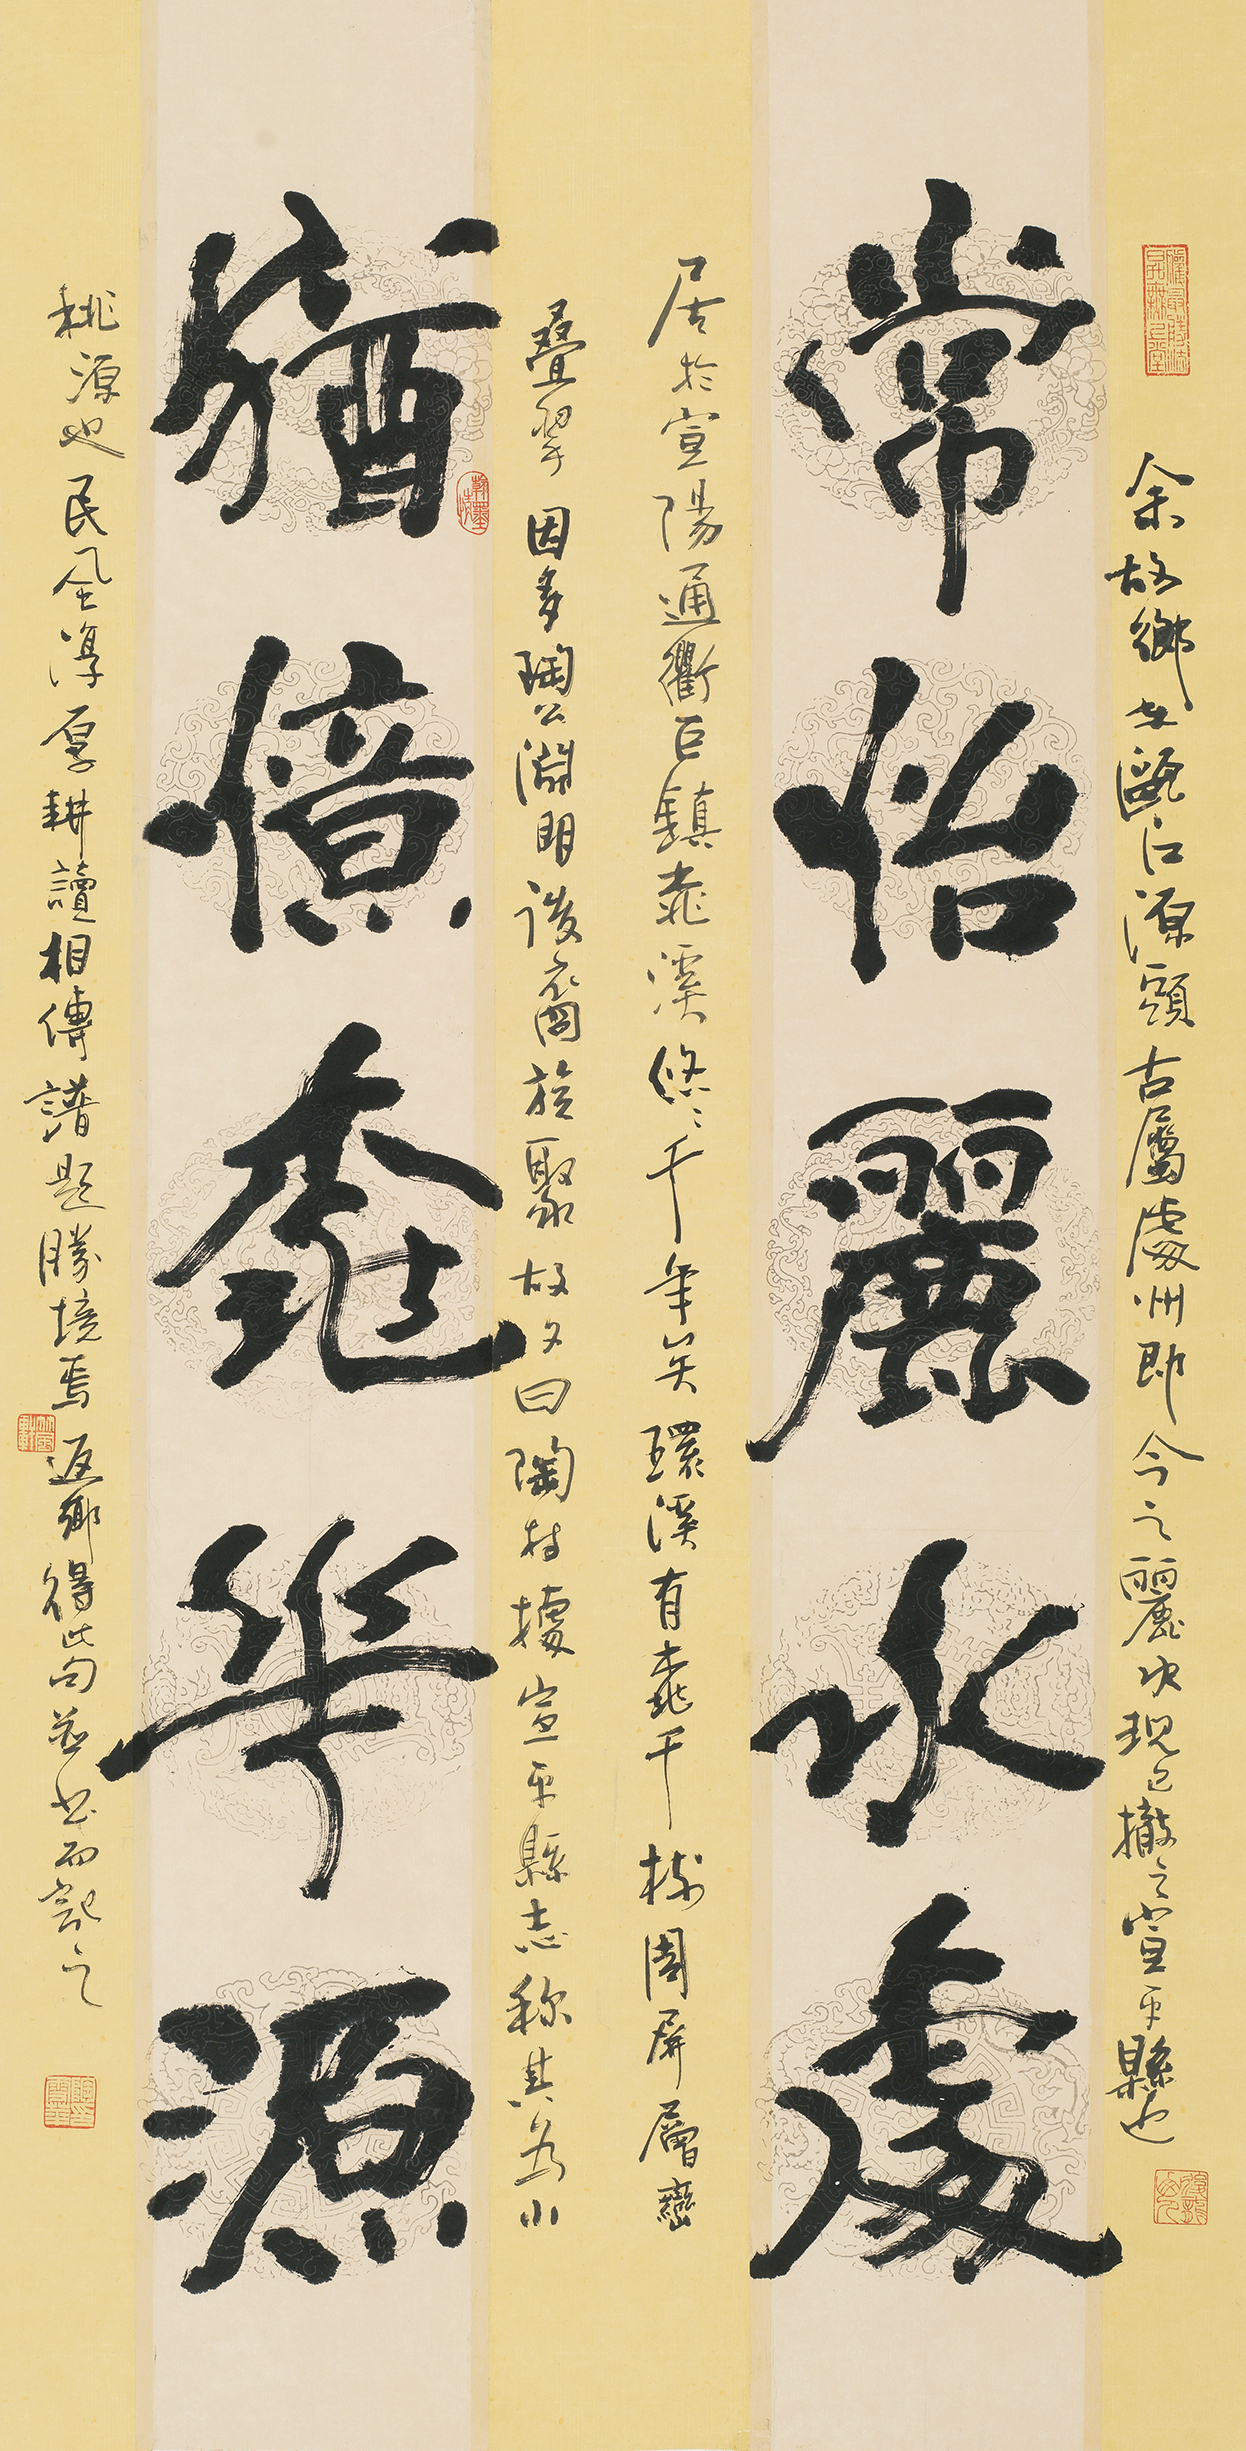 余故鄉在甌江源頭古屬處州即今之麗水現已撤之宣平縣也
常怡麗水處
居於宣陽通衢巨鎮桃溪悠〻千年矣環溪有桃千樹周屏層巒
疊翠因多陶公淵明後裔族聚故又曰陶村據宣平縣志称其為小
猶憶桃華源
桃源也民風淳厚耕讀相傳譜題勝境焉返鄉得此句並書而記之